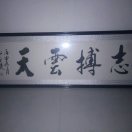 志搏雲天